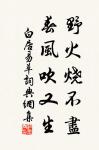 野火烧不盡
春風吹又生
白居易草詞典網集